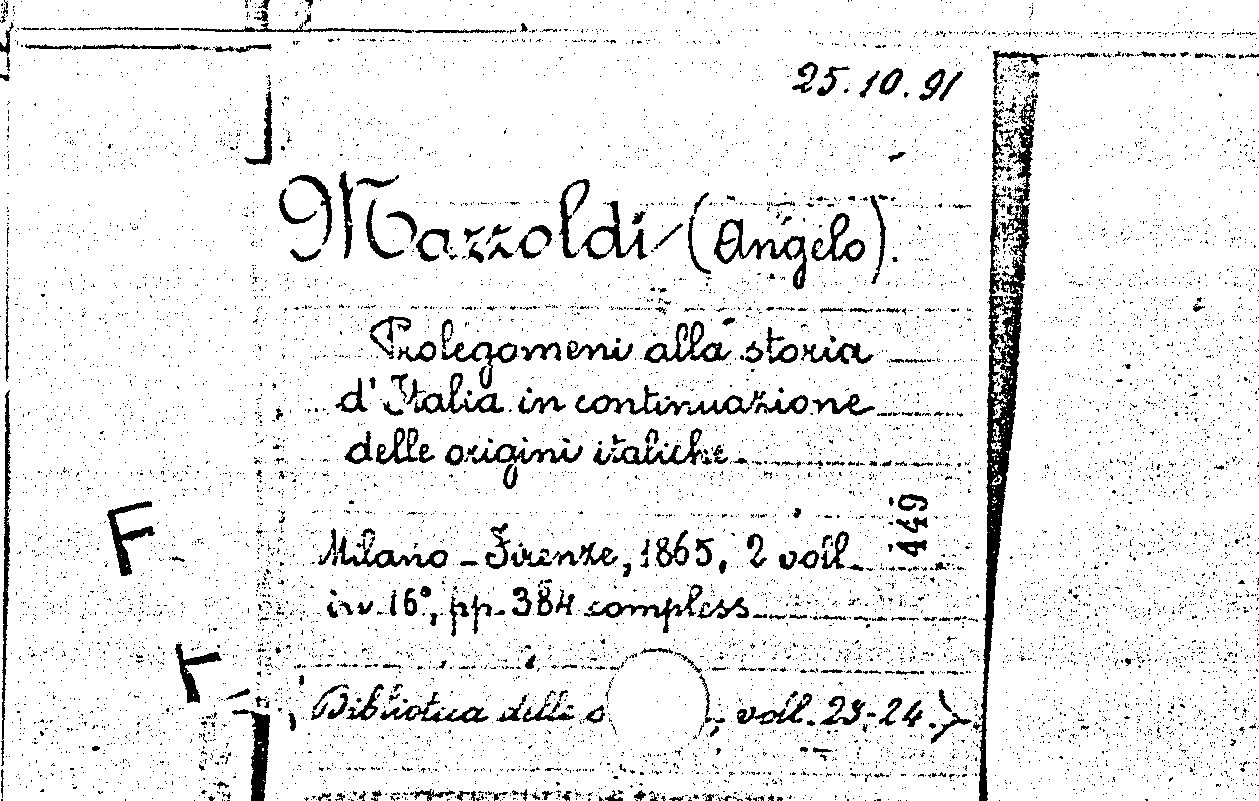 25.10.91
Mazzoldi (Angelo).
Prolegomeni alla storia
d'Italia in continuazione
delle origini italiche.
Milano - Firenze, 1865, 2 voll.
in 16°, pp. 384 compless.
449
(Biblioteca delle , voll. 23-24.)
F